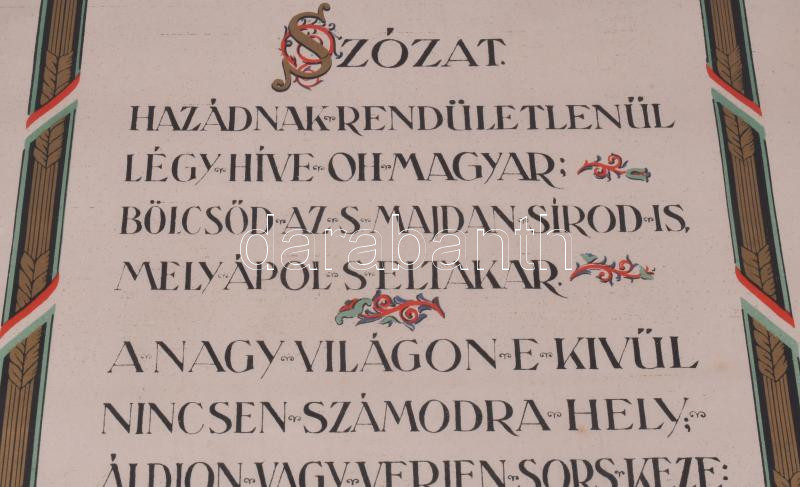 SZÓZAT.
HAZÁDNAK RENDÜLETLENÜL
LÉGY HÍVE OH MAGYAR;
BÖLCSŐD AZ S MAJDAN SÍROD IS,
MELY ÁPOL S ELTAKAR.
darabanth
A NAGY VILÁGON E KIVŰL
NINCSEN SZÁMODRA HELY;
ÁLDJON VAGY VERJEN SORS KEZE: